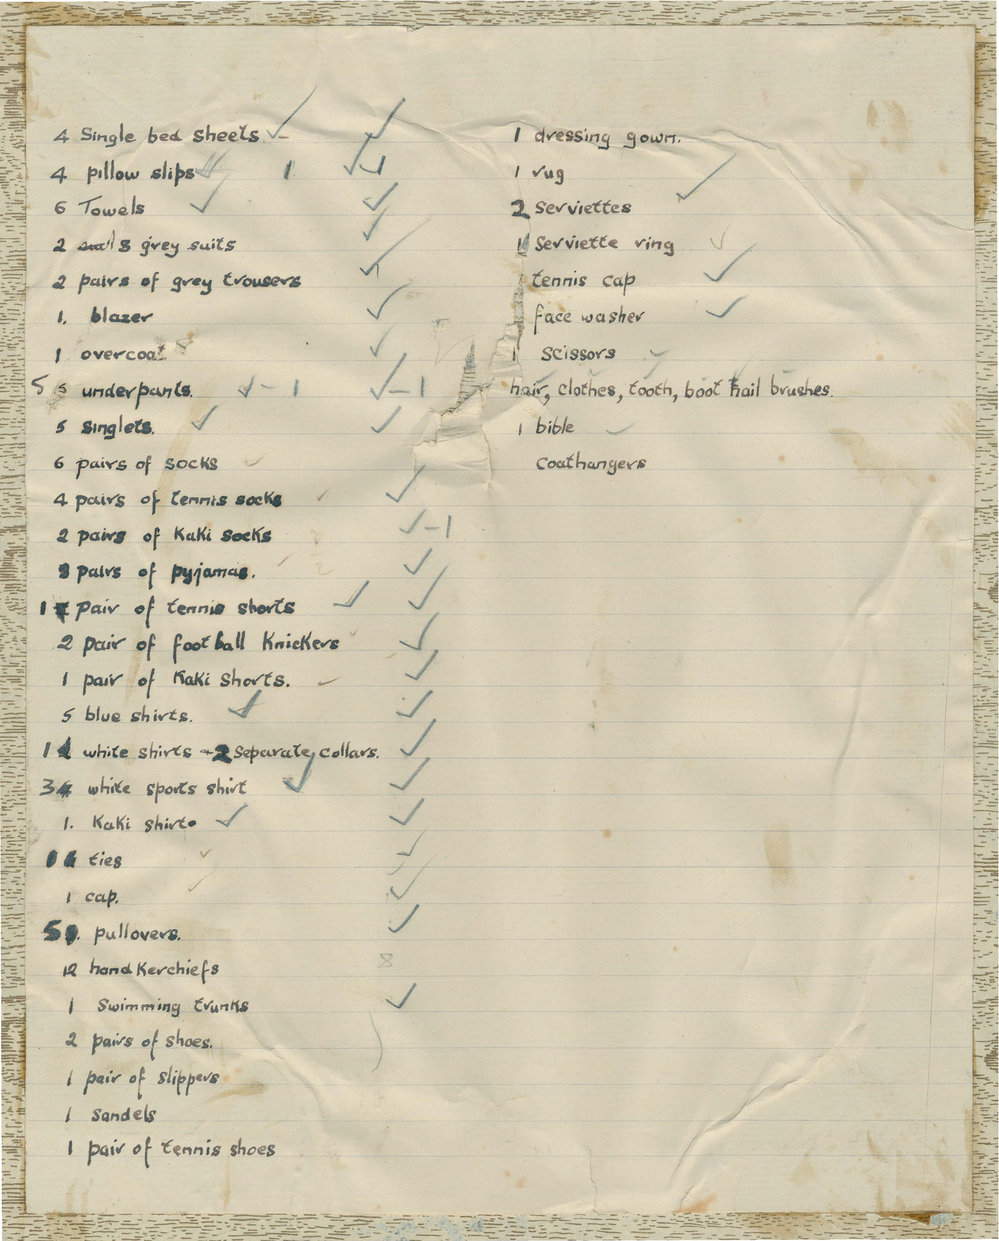 4 Single bed sheets ✓ - ✓
4 pillow slips ✓ 1 ✓ 1
6 Towels ✓ ✓
2 grey suits ✓
2 pairs of grey trousers ✓
1. blazer ✓
1 overcoat ✓
5 5 underpants. ✓ - 1 ✓ - 1
5 singlets. ✓ ✓
6 pairs of socks ✓
4 pairs of tennis socks ✓ ✓
2 pairs of Kaki socks ✓ - 1
3 pairs of pyjamas. ✓ ✓
1 pair of tennis shorts ✓ ✓
2 pair of football Knickers ✓
1 pair of Kaki Shorts. ✓ ✓
5 blue shirts. ✓ ✓
1 white shirts 2 separate collars. ✓
3 white sports shirt ✓ ✓
1. Kaki shirt ✓ ✓
ties ✓ ✓
1 cap. ✓ ✓
5 pullovers. ✓
12 handKerchiefs 8
1 Swimming trunks ✓
2 pairs of shoes.
1 pair of slippers
1 Sandels
1 pair of tennis shoes
1 dressing gown.
1 rug
2 Serviettes ✓
1 Serviette ring ✓
tennis cap ✓
face washer ✓
1 Scissors ✓
hair, clothes, tooth, boot nail brushes.
1 bible ✓
Coathangers